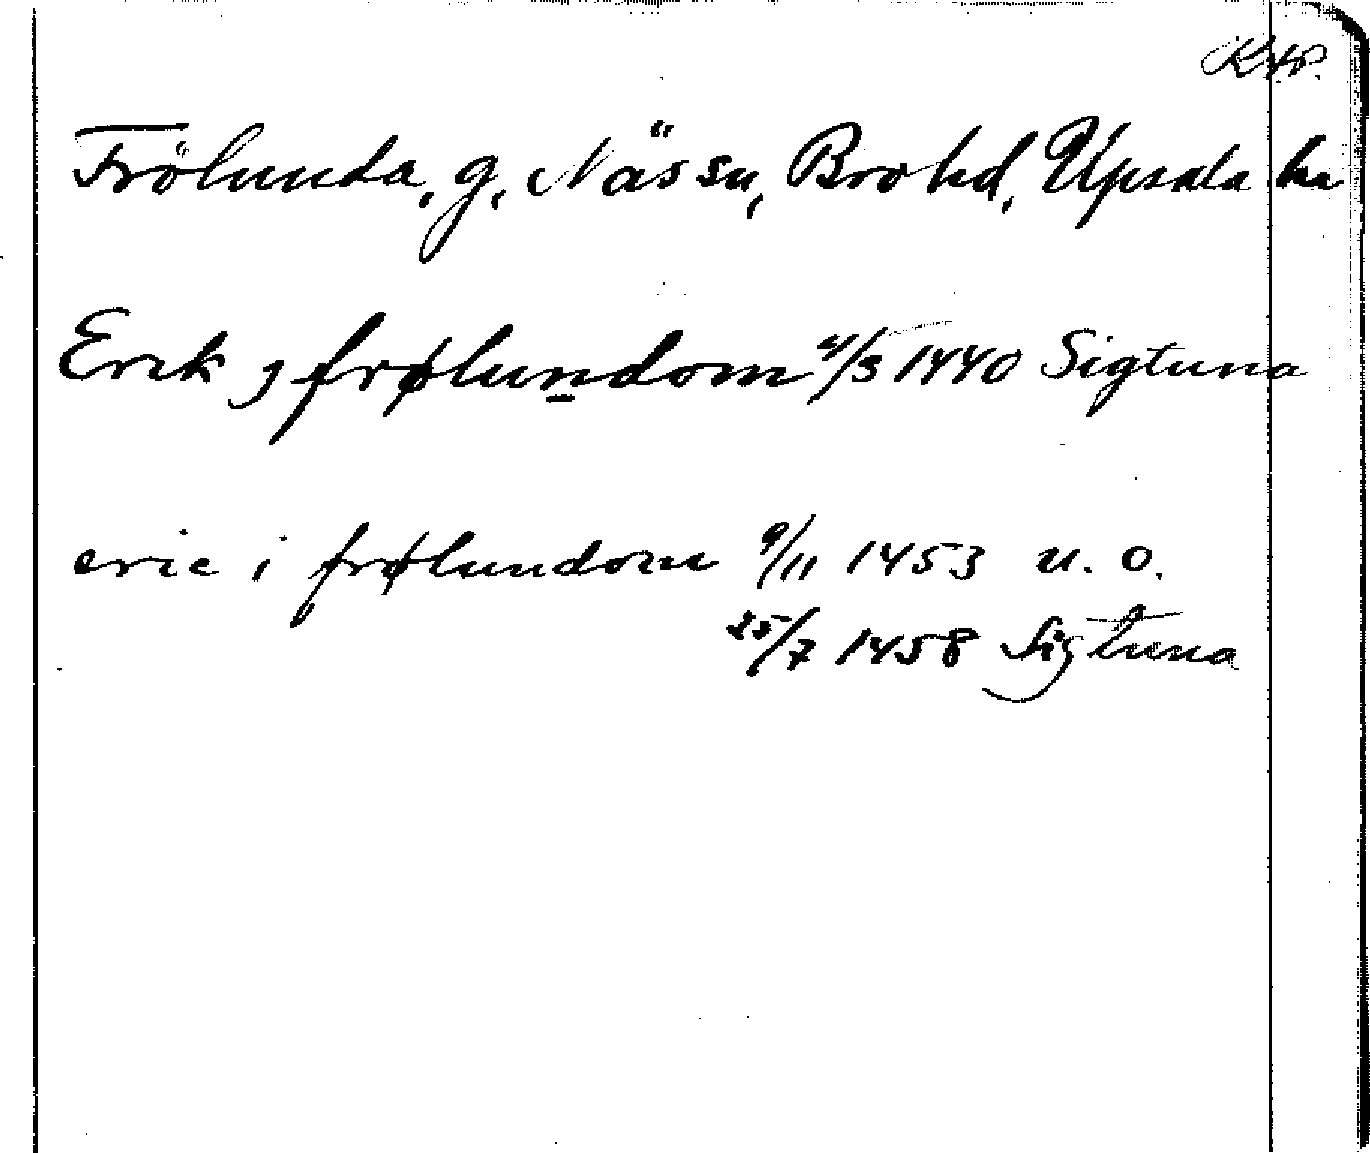 Frölunda, g. Näs sn, Bro hd, Upsala län
Erik j frølundom 21/3 1440 Sigtuna
eric i frølundom 9/11 1453 u. o.
25/7 1458 Sigtuna